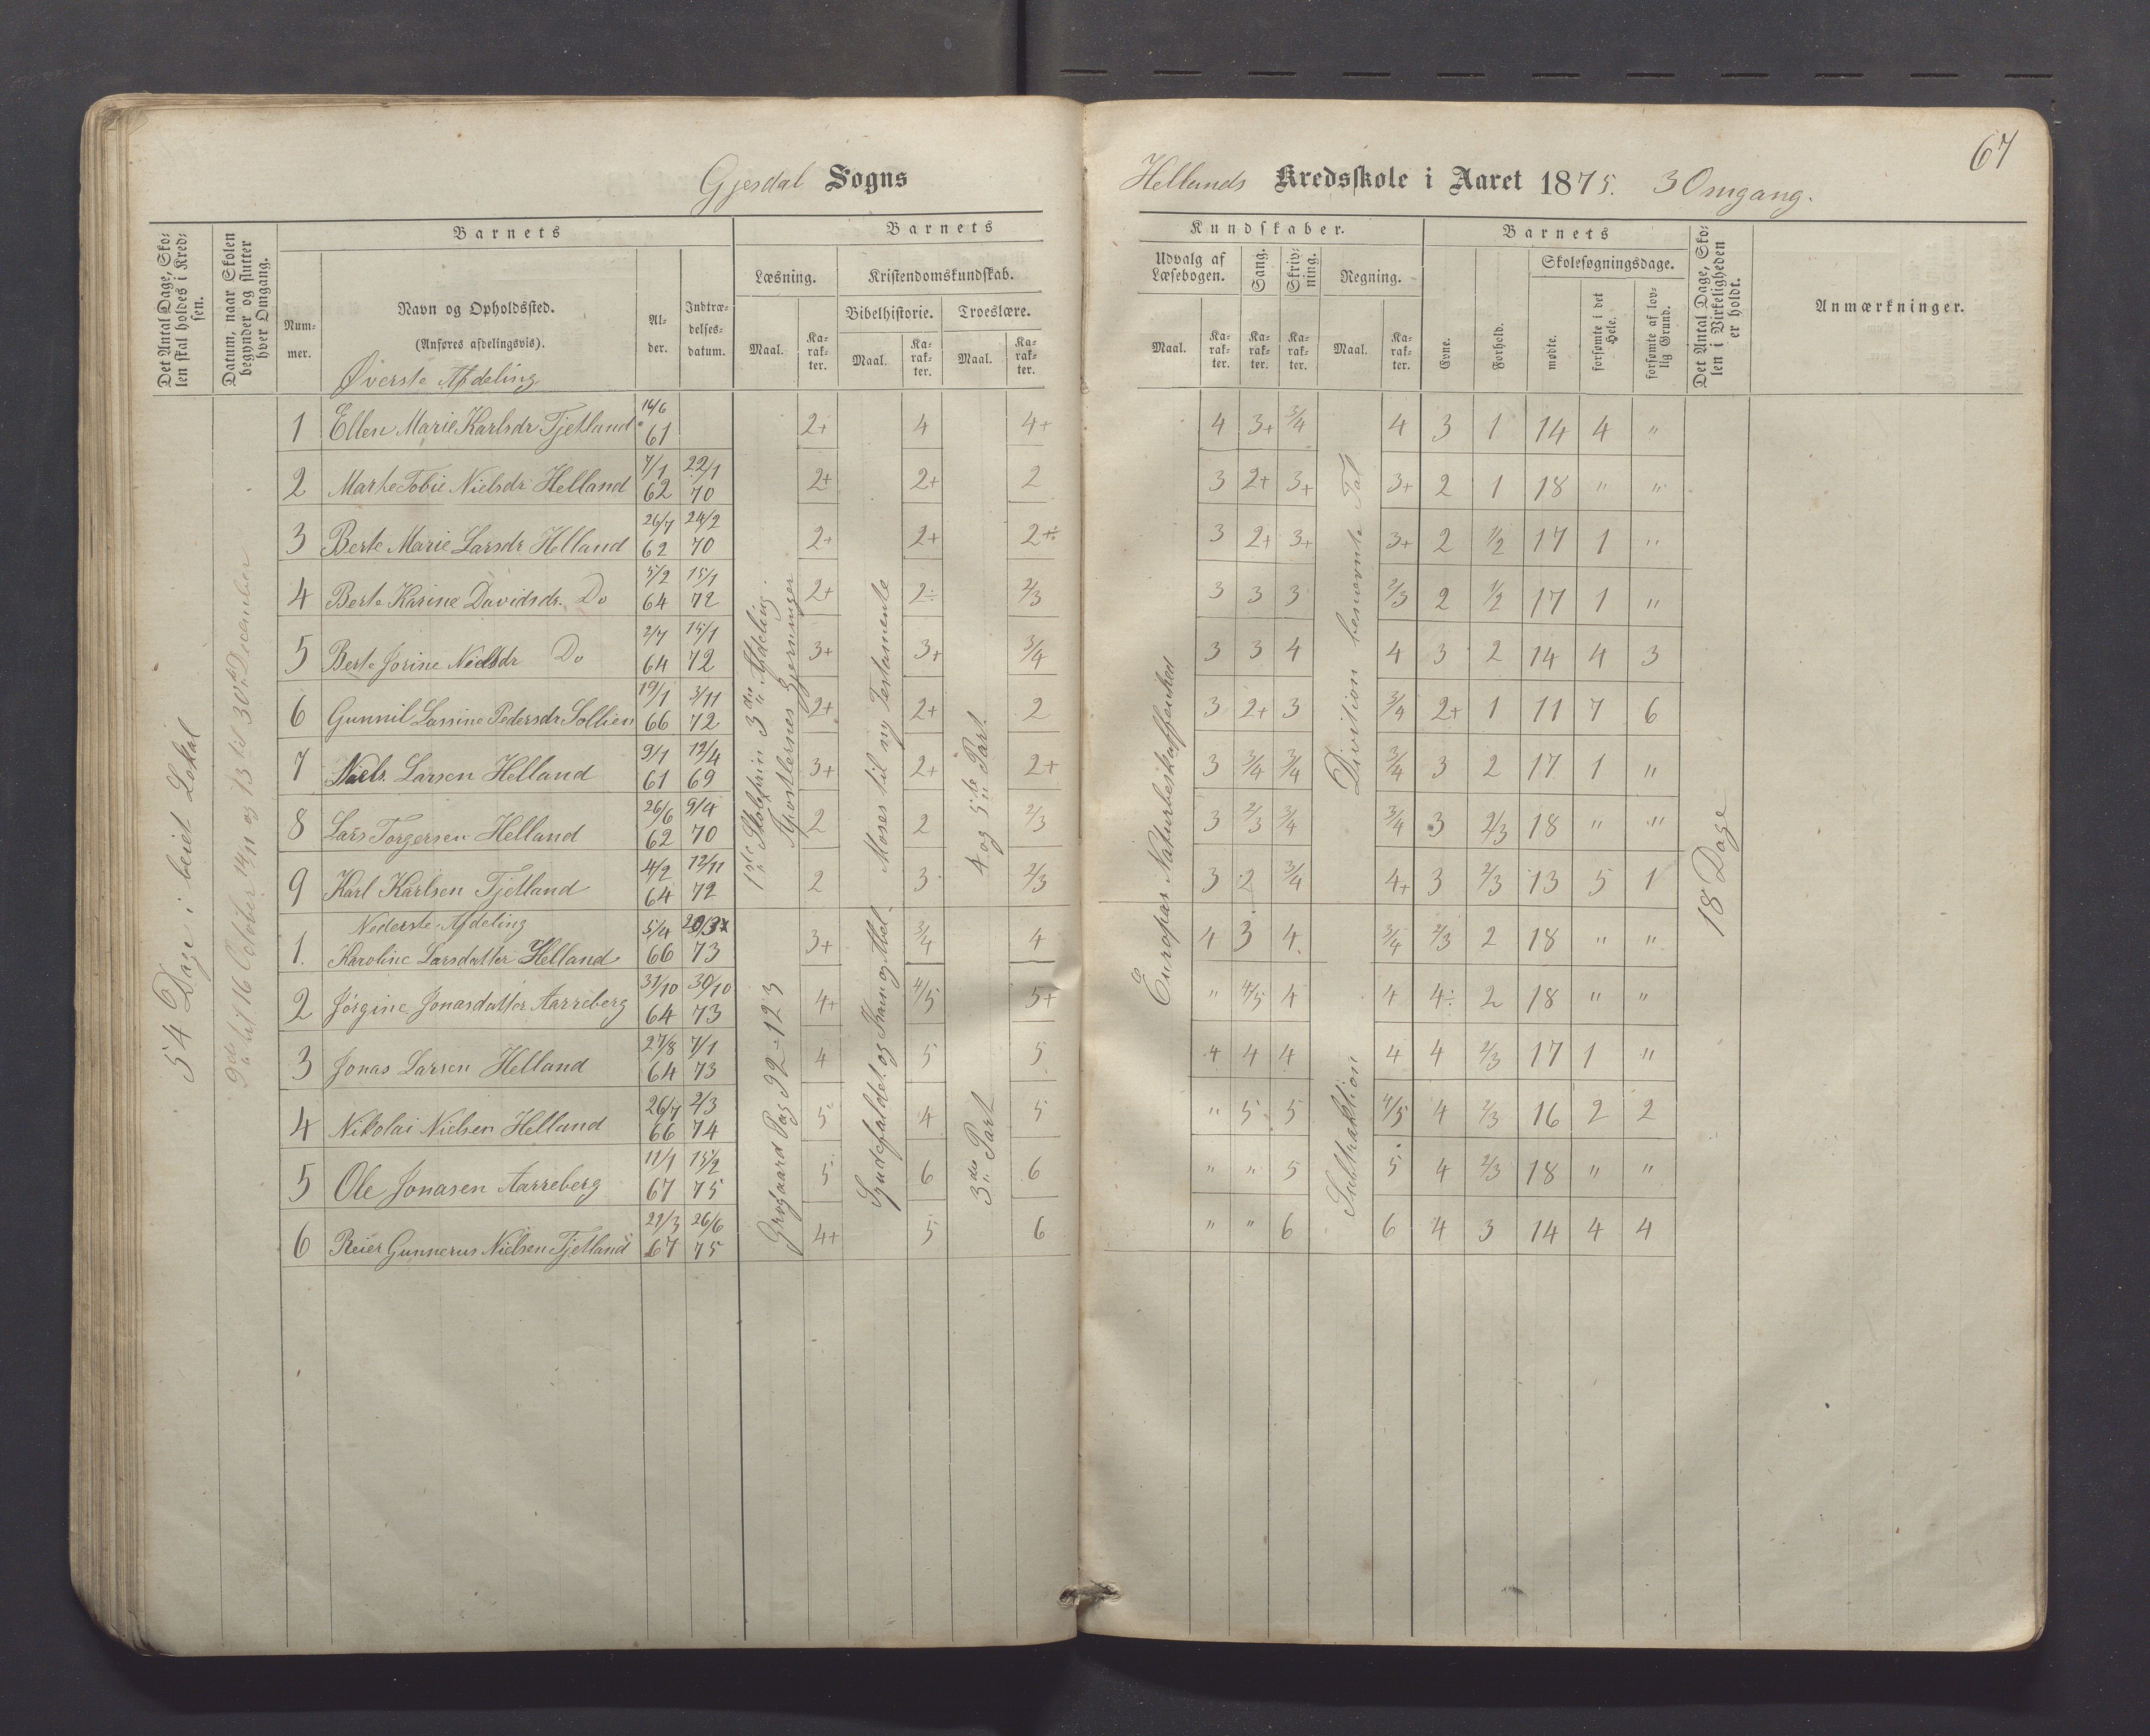 67
Gjesdal Sogns Hellands Kredsskole i Aaret 1875. 3 Omgang.
Det Antal Dage, Skolen skal holdes i Kredsen.
Datum, naar Skolen begynder og slutter hver Omgang.
Barnets
Nummer.
Navn og Opholdssted.
(Anføres afdelingsvis).
Alder.
Indtrædelsesdatum.
Barnets Kundskaber.
Læsning.
Maal.
Karakter.
Kristendomskundskab.
Bibelhistorie.
Maal.
Karakter.
Troeslære.
Maal.
Karakter.
Udvalg af Læsebogen.
Maal.
Karakter.
Sang.
Karakter.
Skrivning.
Karakter.
Regning.
Maal.
Karakter.
Barnets
Evne.
Forhold.
Skolesøgningsdage.
mødte.
forsømte i det Hele.
forsømte af lovlig Grund.
Det Antal Dage, Skolen i Virkeligheden er holdt.
Anmærkninger.
54 Dage i leiet Lokal
9de til 16 October 14/11 og 13 til 30te December
Øverste Afdeling
1ste Skoletrin 3die Afdeling Apostlernes Gjerninger
Moses til ny Testamente
4 og 5te Part
Europas Naturbeskaffenhed
Division benævnte Tal
18 Dage
1 Ellen Marie Karlsdr Tjetland 16/6 61 2+ 4 4+ 4 3+ 3/4 4 3 1 14 4 "
2 Marte Tobie Nielsdr Helland 7/1 62 22/1 70 2+ 2+ 2 3 2+ 3+ 3+ 2 1 18 " "
3 Berte Marie Larsdr Helland 26/7 62 24/2 70 2+ 2+ 2+ 3 2+ 3+ 3+ 2 1/2 17 1 "
4 Berte Karine Davidsdr. Do 5/2 64 15/1 72 2+ 2÷ 2/3 3 3 3 2/3 2 1/2 17 1 "
5 Berte Jorine Nielsdr Do 2/7 64 15/1 72 3+ 3+ 3/4 3 3 4 4 3 2 14 4 3
6 Gunnil Lassine Pedersdr Sollien 19/1 66 3/11 72 2+ 2+ 2 3 2+ 3 3/4 2+ 1 11 7 6
7 Niels Larsen Helland 9/1 61 12/4 69 3+ 2+ 2+ 3 3/4 3/4 3/4 3 2 17 1 "
8 Lars Torgersen Helland 26/6 62 9/4 70 2 2 2/3 3 2/3 3/4 3/4 3 2/3 18 " "
9 Karl Karlsen Tjetland 4/2 64 12/11 72 2 3 2/3 3 2 3/4 4+ 3 2/3 13 5 1
Nederste Afdeling
Grøgaard Pag 92-123
Syndefaldet og Kain og Abel
3die Part
Subtraktion
1. Karoline Larsdatter Helland 5/4 66 73 3+ 3/4 4 4 3 4 3/4 2/3 2 18 " "
2 Jørgine Jonasdatter Aarreberg 31/10 64 30/10 73 4+ 4/5 5+ " 4/5 4 4 4÷ 2 18 " "
3 Jonas Larsen Helland 27/8 64 7/1 73 4 5 5 4 4 4 4 4 2/3 17 1 "
4 Nikolai Nielsen Helland 26/7 66 2/3 74 5 4 5 " 5 5 4/5 4 2/3 16 2 2
5 Ole Jonasen Aarreberg 11/1 67 15/2 75 5 6 6 " " 5 5 4 2/3 18 " "
6 Reier Gunnerus Nielsen Tjetland 21/3 67 26/6 75 4+ 5 6 " " 6 6 4 3 14 4 4